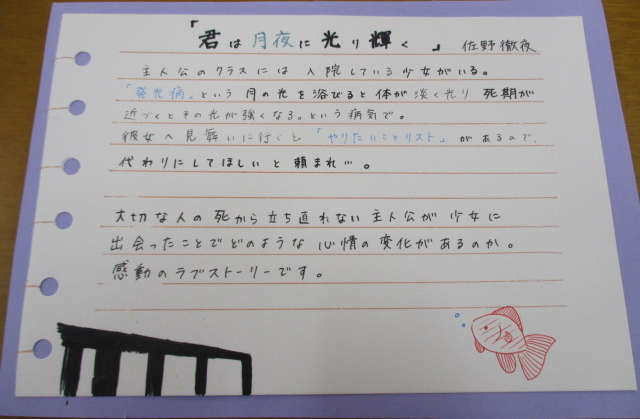 『君は月夜に光り輝く』 佐野徹夜
主人公のクラスには入院している少女がいる。
「発光病」という月の光を浴びると体が淡く光り死期が
近づくとその光が強くなる。という病気で。
彼女へ見舞いに行くと「やりたいことリスト」があるので、
代わりにしてほしいと頼まれ…。
大切な人の死から立ち直れない主人公が少女に
出会ったことでどのような心情の変化があるのか。
感動のラブストーリーです。